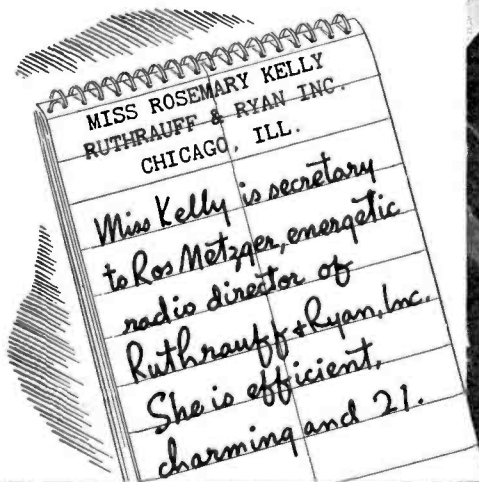 MISS ROSEMARY KELLY
RUTHRAUFF & RYAN INC.
CHICAGO, ILL.
Miss Kelly is secretary
to Ros Metzger, energetic
radio director of
Ruthrauff & Ryan, Inc.
She is efficient,
charming and 21.